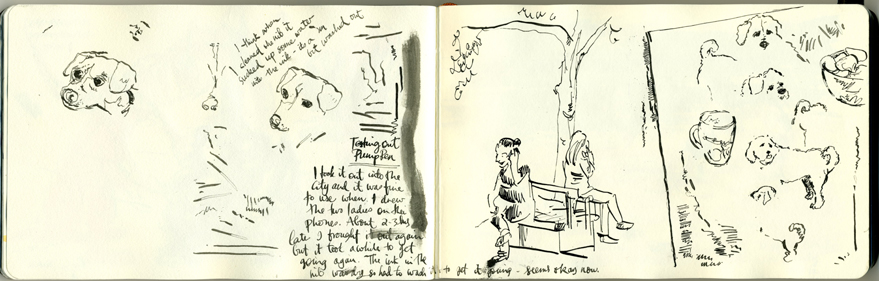 I think when
I cleaned the nib it
sucked up some water
into the ink. its a
bit washed out
Testing out
Pump Pen
I took it out into the
city and it was fine
to use when I drew
the two ladies on their
phones. About 2-3 hrs
late I brought it out again
but it took awhile to get
going again. The ink in the
nib so had to wash to get it going - seems okay now.